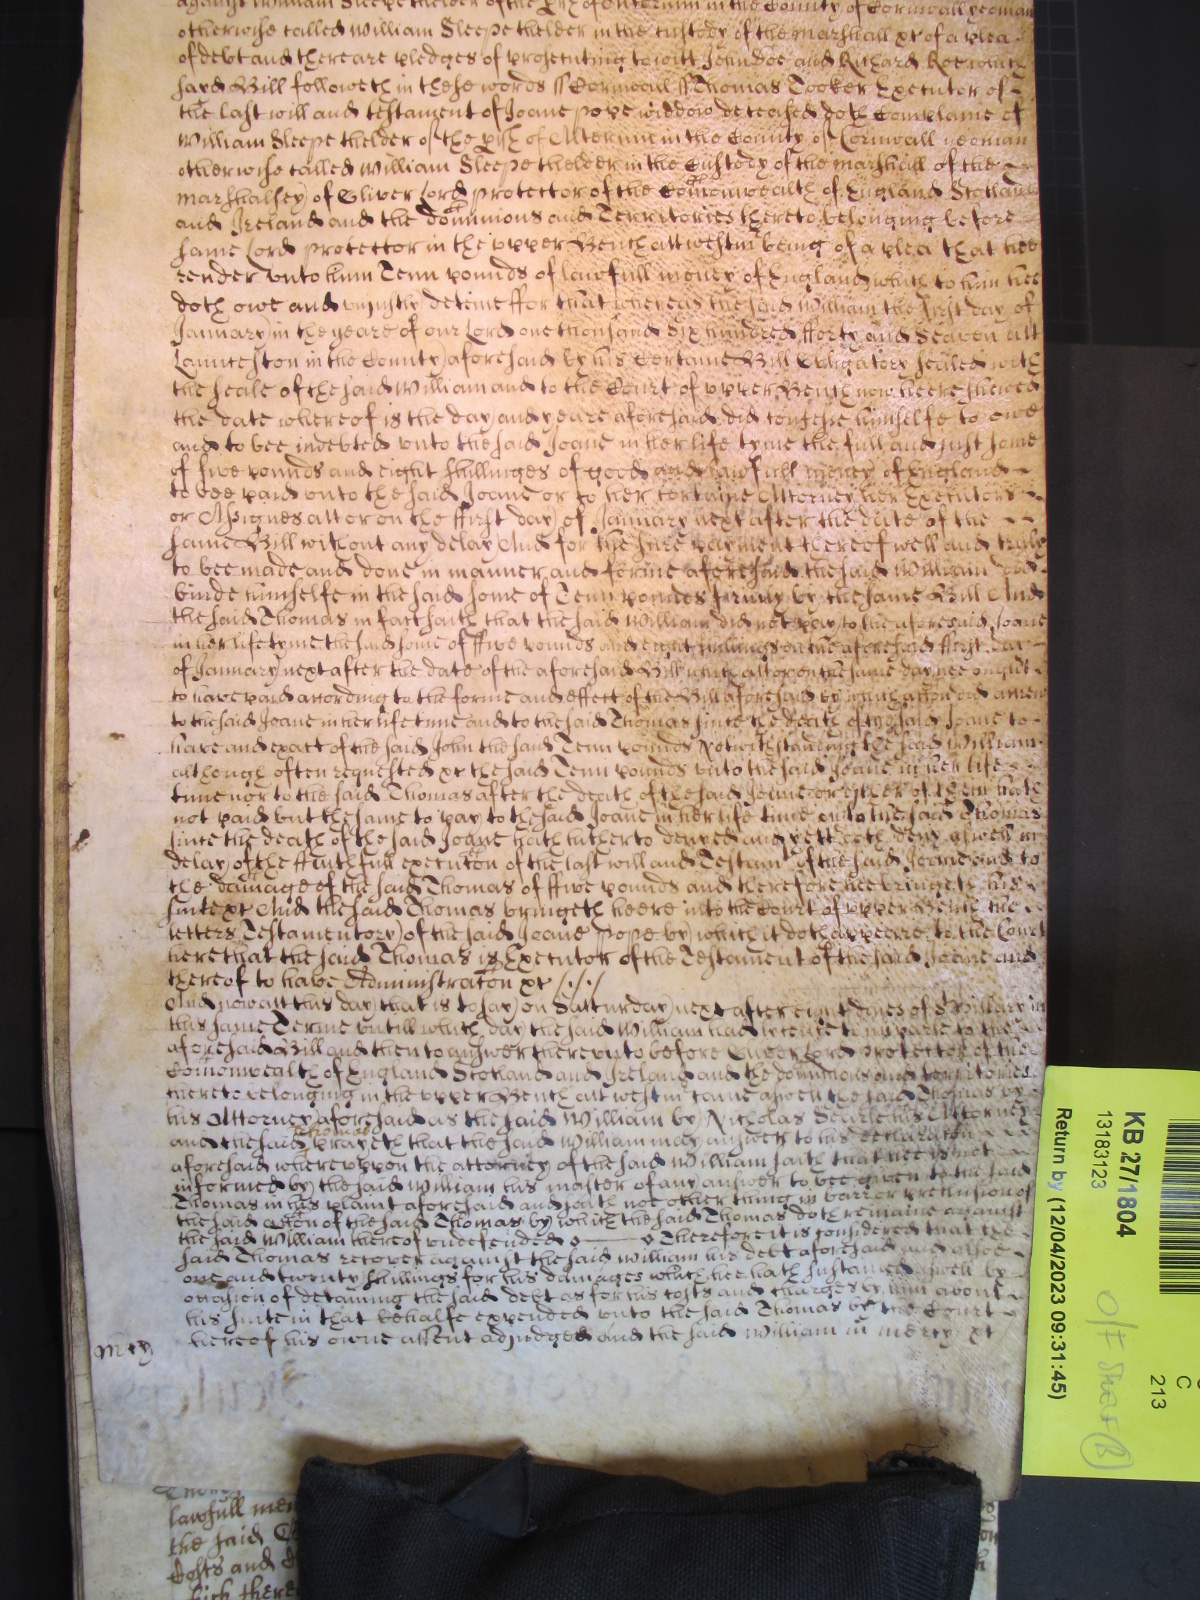 against William Sleepe thelder of the pish of Alternun in the County of Cornwall yeoman
otherwise called William Sleepe thelder in the custody of the marshall xt of a plea
of debt and there are pledges of prosecuting to witt John doe and Richard Roe which
said Bill followeth in these words ss Cornwall ss Thomas Tooker Executor of
the last will and testament of Joane pope widdow deceased doth Complaine of
William Sleepe thelder of the pish of Alternun in the County of Cornwall yeoman
otherwise called William Sleepe thelder in the Custody of the marshall of the
marshalsey of Oliver Lord protector of the Comonwealth of England Scotland
and Ireland and the dominions and Territories thereto belonging before
same Lord protector in the upper Bench att westm being of a plea that hee
render unto him Tenn pounds of lawfull money of England which to him hee
doth owe and uniustly deteine ffor that whereas the said William the first day of
January in the yeare of our Lord one thousand six hundred fforty and Seaven att
Launceston in the County aforesaid by his Certaine Bill Obligatory sealed with
the seale of the said William and to the Court of upper Bench now heere shewed
the date whereof is the day and yeare aforesaid did confesse himselfe to owe
and to bee indebted unto the said Joane in her life tyme the full and just some
of five pounds and eight shillinges of good and lawfull money of England
to bee paid unto the said Joane or to her certaine Attorney her Executors
or Assignes att or on the ffirst day of January next after the date of the
same Bill without any delay And for the sure payment thereof well and truly
to bee made and done in manner and forme aforesaid the said William did
binde himselfe in the said some of Tenn pounds firmly by the same Bill And
the said Thomas in fact saith that the said William did not pay to the aforesaid Joane
in her life tyme the said some of ffive pounds and eight shillings on the aforesaid ffirst day
of January next after the date of the aforesaid Bill which att or on the same day hee ought
to have paid according to the forme and effect of the Bill aforesaid by which accon did accrew
to the said Joane in her life time and to the said Thomas since the death of the said Joane to
have and exact of the said John the said Tenn pounds Notwithstanding the said William
although often requested xt the said Tenn pounds unto the said Joane in her life
time nor to the said Thomas after the death of the said Joane or either of them hath
not paid but the same to pay to the said Joane in her life time or to the said Thomas
since the death of the said Joane hath hitherto denyed and yett doth deny aswell in
delay of the ffaithfull execution of the last will and Testamt of the said Joane and to
the damage of the said Thomas of ffive pounds and therefore hee bringeth his
suite xt And the said Thomas bringeth heere into the Court of upper Bench the
letters Testamentory of the said Joane Pope by which it doth appeare to the Court
here that the said Thomas is Executor of the Testament of the said Joane and
thereof to have Administraton xt /././
And now att this day that is to say on Satturday next after eight dayes of St Hillary in
this same Terme untill which day the said William had licence to imparle to the
aforesaid Bill and then to answer thereunto before Oliver Lord Protector of the
Comonwealth of England Scotland and Ireland and the dominions and territories
thereto belonging in the upper Bench att westm came aswell the said Thomas by
his Attorney aforesaid as the said William by Nicholas Searle his Attorney
and the said Thomas prayeth that the said William may answer to his declaraton
aforesaid whereuppon the attorney of the said William saith that hee is not
informed by the said William his master of any answer to bee given to the said
Thomas in his plaint aforesaid and saith not other thing in barr or preclusion of
the said accon of the said Thomas by which the said Thomas doth remaine against
the said William thereof undefended Therefore it is considered that the
said Thomas recover against the said William his debt aforesaid and alsoe
one and twenty shillings for his damages which hee hath sustained aswell by
occasion of detaining the said debt as for his costs and charges by him about
his suite in that behalfe expended unto the said Thomas by the Court
hereof his owne assent adjudged and the said William in mercy xt
mcy
lawfull
the said
Costs and
KB 27/1804
13183123
Return by (12/04/2023 09:31:45)
C
213